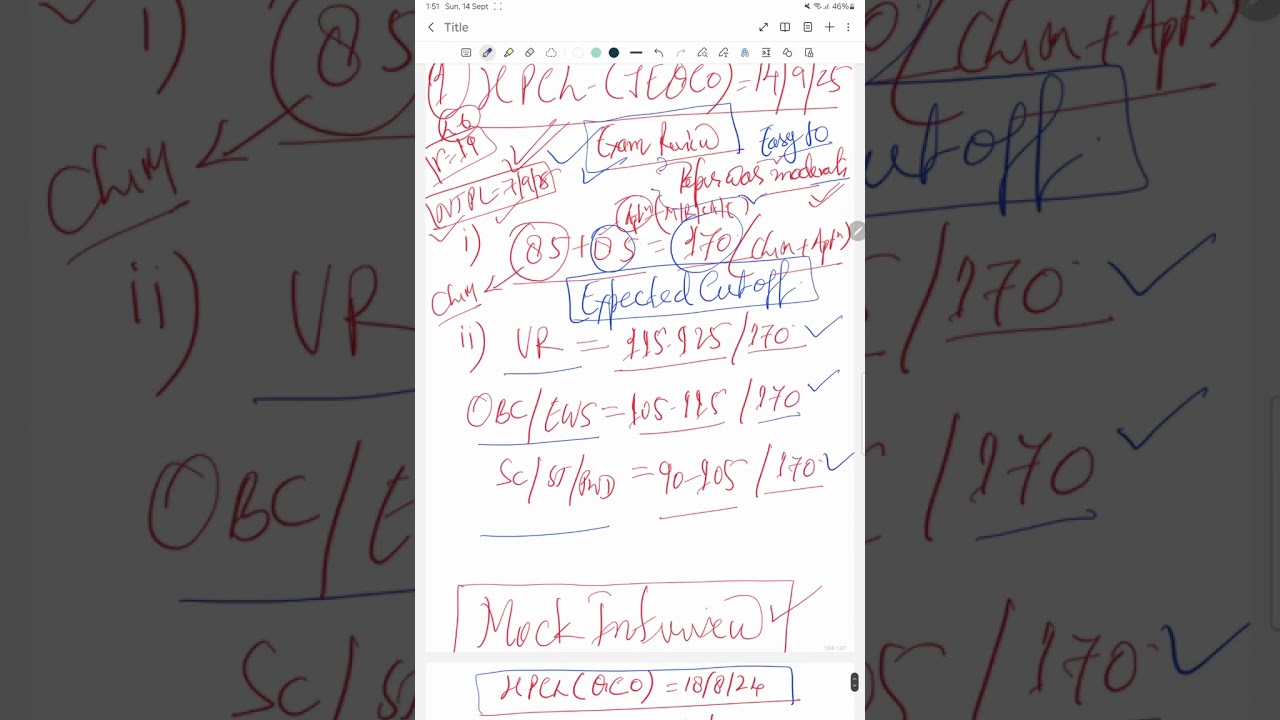 1:51 Sun, 14 Sept 46%
Title
(1) HPCL-(JEQCO)=14/9/25
Exam Review
Easy to
Paper was moderate
V=19
NTPL=7/9/25
i) 85+85=170/(Chem+Aptⁿ)
Chem
Expected Cutoff
ii) UR = 115-125/170
OBC/EWS=105-115/170
SC/ST/PWD=90-105/170
Mock Interview
104/107
HPCL(QCO)=18/8/24